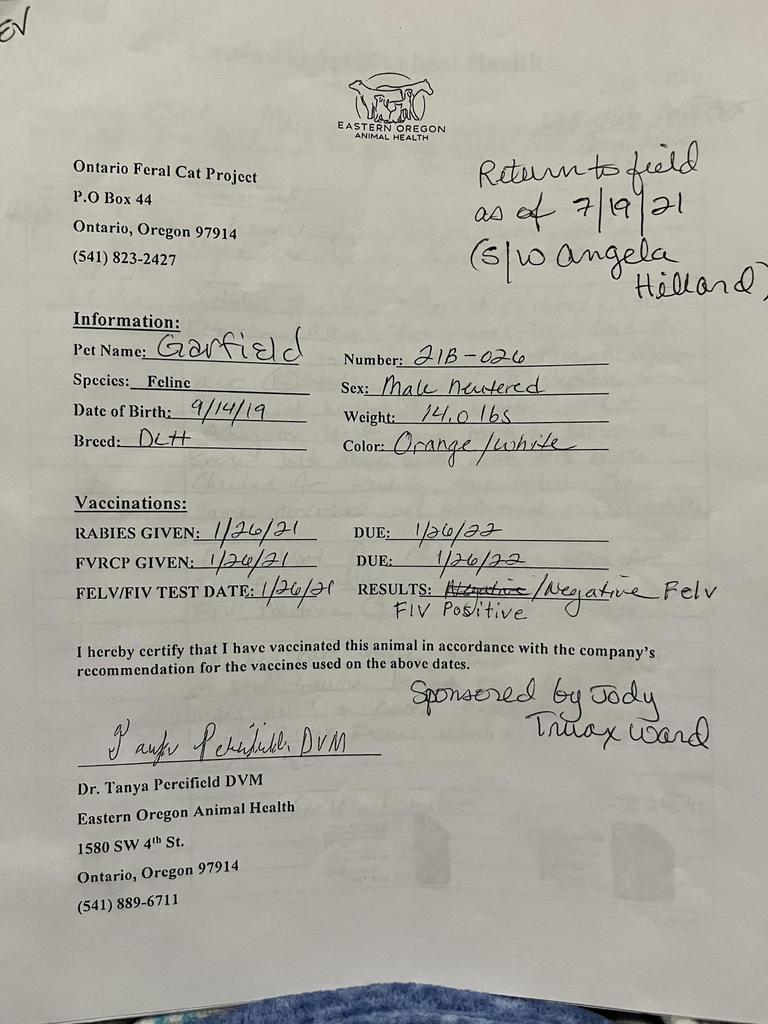 EV
EASTERN OREGON
ANIMAL HEALTH
Ontario Feral Cat Project
P.O Box 44
Ontario, Oregon 97914
(541) 823-2427
Return to field
as of 7/19/21
(S/W Angela
Hillard)
Information:
Pet Name: Garfield
Number: 21B-026
Species: Feline
Sex: Male Neutered
Date of Birth: 9/14/19
Weight: 14.0 lbs
Breed: DLH
Color: Orange/white
Vaccinations:
RABIES GIVEN: 1/26/21 DUE: 1/26/22
FVRCP GIVEN: 1/26/21 DUE: 1/26/22
FELV/FIV TEST DATE: 1/26/21 RESULTS: Negative/Negative Felv
FIV Positive
I hereby certify that I have vaccinated this animal in accordance with the company's
recommendation for the vaccines used on the above dates.
Sponsored by Jody
Truax Ward
Tanya Percifield, DVM
Dr. Tanya Percifield DVM
Eastern Oregon Animal Health
1580 SW 4th St.
Ontario, Oregon 97914
(541) 889-6711